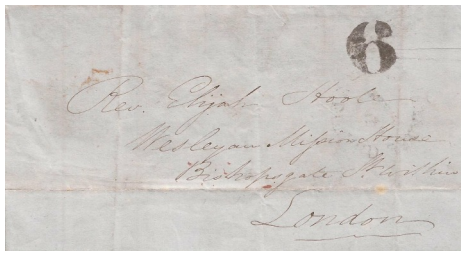 6
Rev. Elijah Hoole
Wesleyan Mission House
Bishopsgate St Within
London